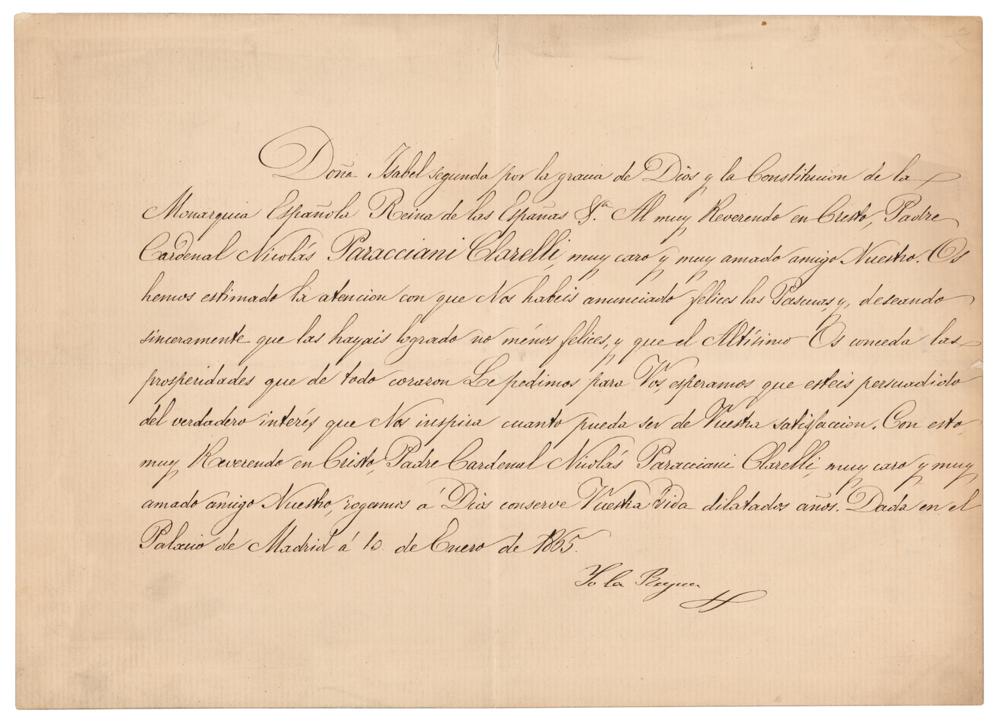 Doña Isabel segunda por la gracia de Dios y la Constitucion de la
Monarquia Española Reina de las Españas &.ª Al muy Reverendo en Cristo, Padre
Cardenal Nicolás Paracciani Clarelli, muy caro y muy amado amigo Nuestro. Os
hemos estimado la atencion con que Nos habeis anunciado felices las Pascuas, y, deseando
sinceramente que las hayais logrado no ménos felices, y que el Altísimo Os conceda las
prosperidades que de todo corazon Le pedimos para Vos, esperamos que esteis persuadido
del verdadero interés que Nos inspira cuanto pueda ser de Vuestra satisfaccion. Con esto,
muy Reverendo en Cristo, Padre Cardenal Nicolás Paracciani Clarelli, muy caro y muy
amado amigo Nuestro, rogamos á Dios conserve Vuestra vida dilatados años. Dada en el
Palacio de Madrid á 10 de Enero de 1865.
Yo la Reyna